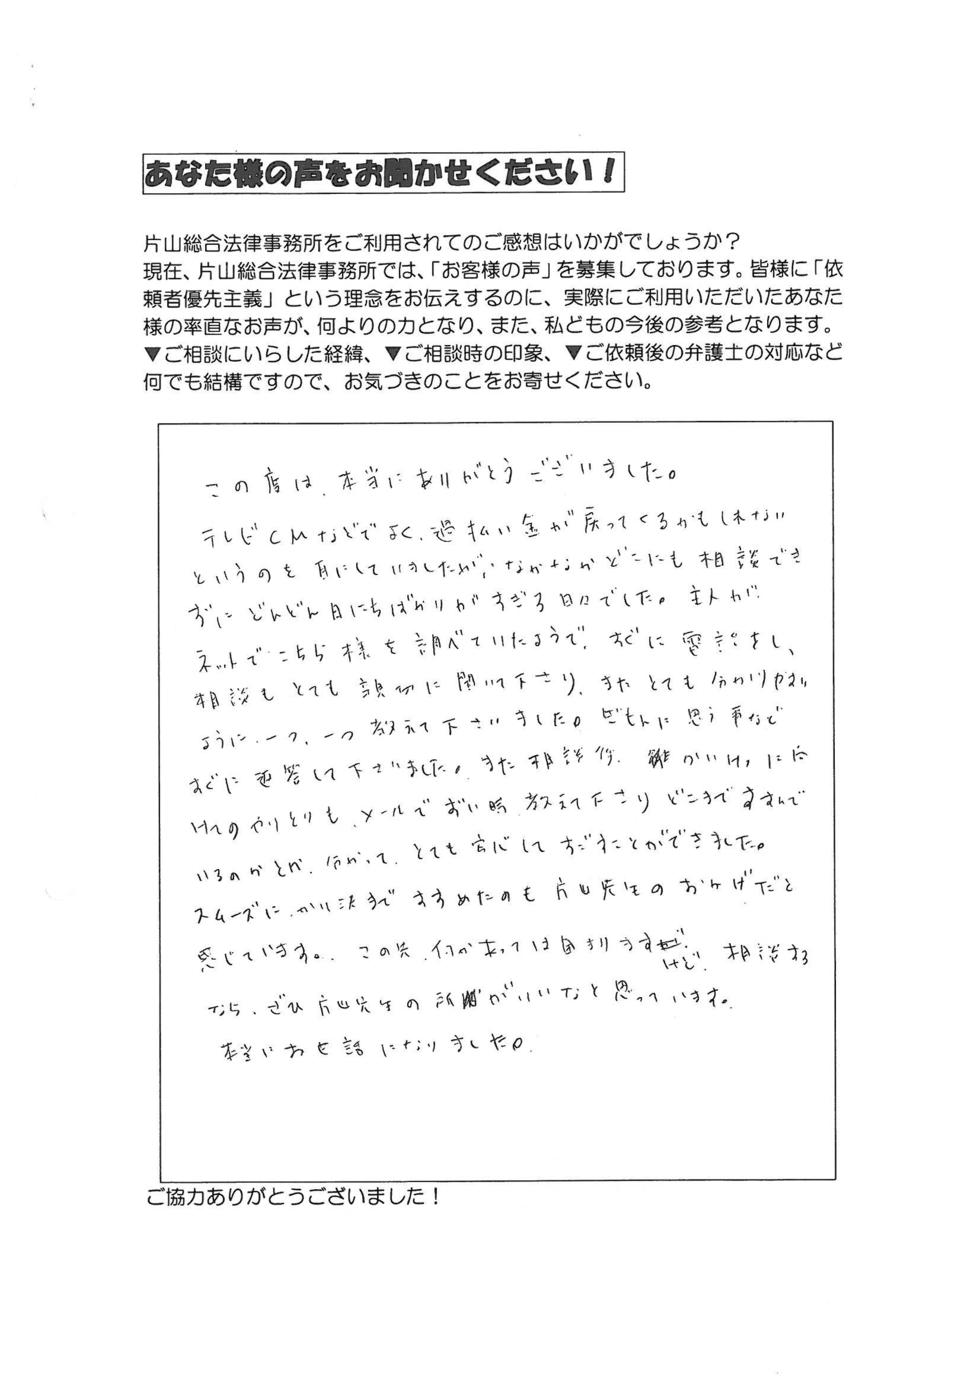 あなた様の声をお聞かせください！
片山総合法律事務所をご利用されてのご感想はいかがでしょうか？
現在、片山総合法律事務所では、「お客様の声」を募集しております。皆様に「依
頼者優先主義」という理念をお伝えするのに、実際にご利用いただいたあなた
様の率直なお声が、何よりの力となり、また、私どもの今後の参考となります。
▼ご相談にいらした経緯、▼ご相談時の印象、▼ご依頼後の弁護士の対応など
何でも結構ですので、お気づきのことをお寄せください。
この度は、本当にありがとうございました。
テレビCMなどでよく、過払い金が戻ってくるかもしれない
というのを耳にしていましたが、なかなかどこにも相談でき
ずにどんどん日にちばかりがすぎる日々でした。主人が
ネットでこちら様を調べていたようで、すぐに電話をし、
相談もとても親切に聞いて下さり、またとても分かりやすい
ように、一つ、一つ教えて下さいました。ぎもんに思う事など
すぐに返答して下さいました。また相談後、に向
けてのやりとりも、メールでずい時教えて下さりどこまですすんで
いるのかとか、分かって、とても安心してすごすことができました。
スムーズに、かい決まですすめたのも片山先生のおかげだと
感じています。この先、何かあっては困りますけど、相談する
なら、ぜひ片山先生の所がいいなと思っています。
本当にお世話になりました。
ご協力ありがとうございました！